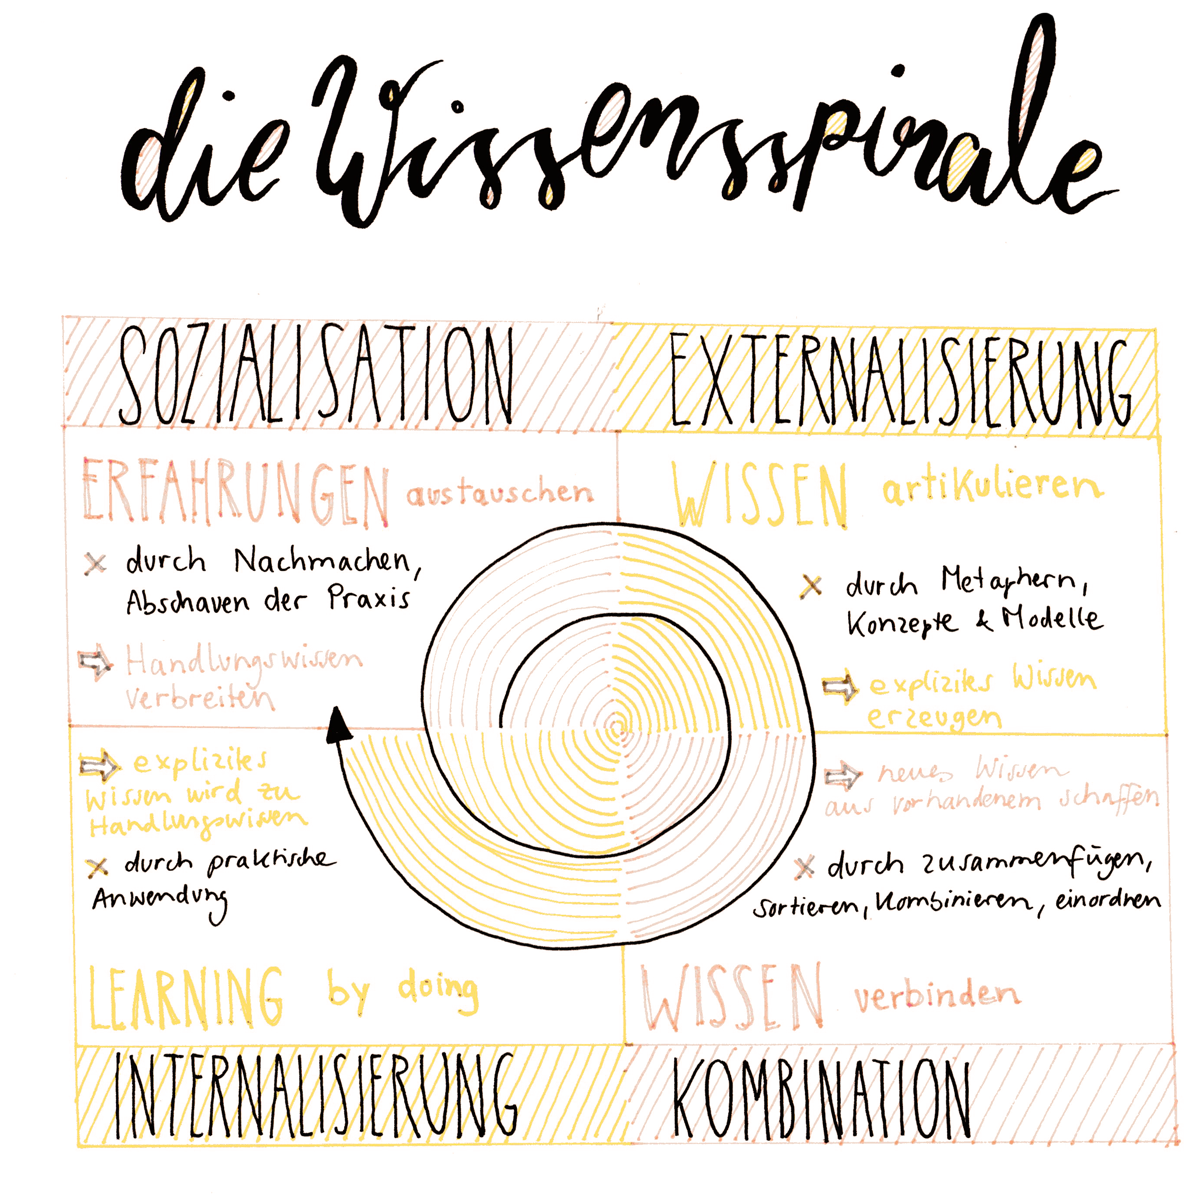 die Wissensspirale
SOZIALISATION
ERFAHRUNGEN austauschen
x durch Nachmachen,
Abschauen der Praxis
⇨ Handlungswissen
verbreiten
EXTERNALISIERUNG
WISSEN artikulieren
x durch Metaphern,
Konzepte & Modelle
⇨ explizites Wissen
erzeugen
⇨ explizites
Wissen wird zu
Handlungswissen
x durch praktische
Anwendung
LEARNING by doing
INTERNALISIERUNG
⇨ neues Wissen
aus vorhandenem schaffen
x durch zusammenfügen,
sortieren, kombinieren, einordnen
WISSEN verbinden
KOMBINATION